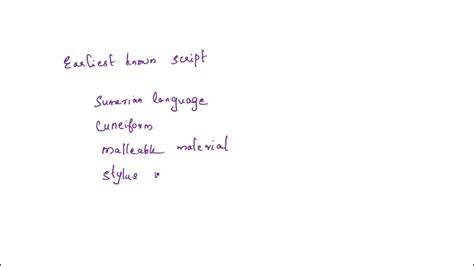 Earliest known script
Sumerian language
Cuneiform
malleable material
stylus